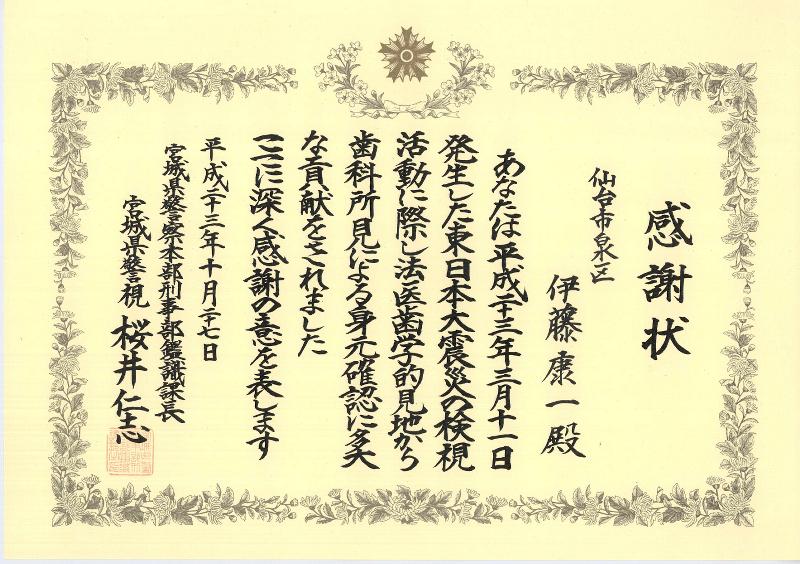 感謝状
仙台市泉区
伊藤康一殿
あなたは平成二十三年三月十一日
発生した東日本大震災の検視
活動に際し法医歯学的見地から
歯科所見による身元確認に多大
な貢献をされました
ここに深く感謝の意を表します
平成二十三年十月二十七日
宮城県警察本部刑事部鑑識課長
宮城県警視 桜井仁志